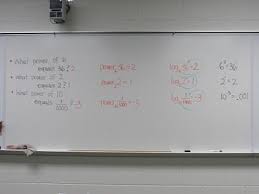 • What power of 6
equals 36? 2
• What power of 2
equals 2? 1
• What power of 10
equals 1/1000? -3
power₆36 = 2
power₂2 = 1
power₁₀1/1000 = -3
log₆36 = 2
log₂2 = 1
log₁₀1/1000 = -3
6² = 36
2¹ = 2
10⁻³ = .001